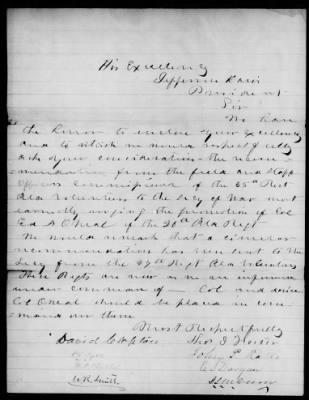 His Excellency
Jefferson Davis
President
Sir
We have
the honor to enclose your Excellency
and to which we would respectfully
ask your consideration the recom-
mendation from the field and Staff
Officers Commissioned of the 35th Regt
Ala Volunteers to the Secy of War most
earnestly urging the promotion of Col
Ed A O'Neal of the 26th Ala Regt
We would remark that a similar
recommendation has been sent to the
Secy from the 27th Regt Ala Volunteers
These Regts are now as we are informed
under command of Col and desire
Col O'Neal should be placed in com-
mand over them
Most Respectfully
David Clopton Thos J Foster
John P Ralls
W R Smith